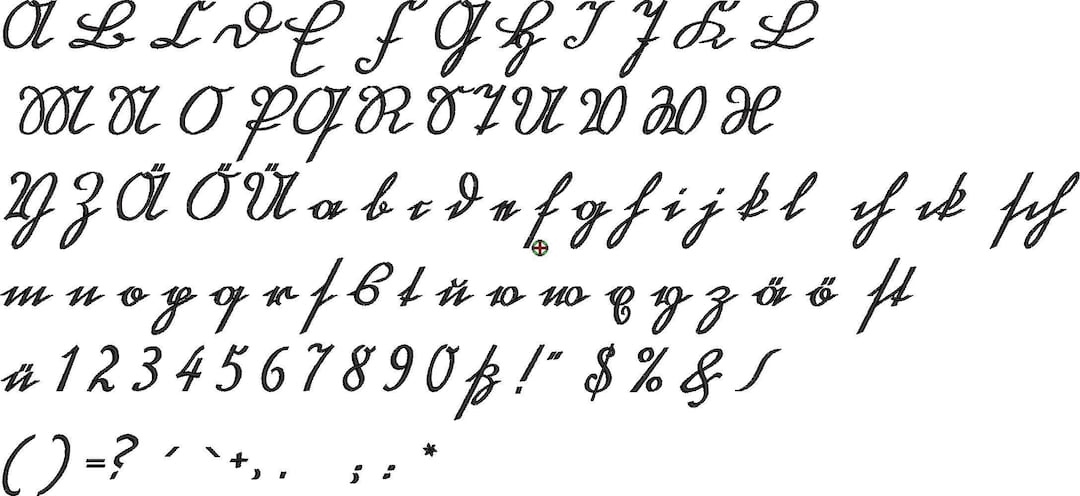 A B C D E F G H I J K L
M N O P Q R S T U V W X
Y Z Ä Ö Ü a b c d e f g h i j k l ch ck ſch
m n o p q r ſ s t u v w x y z ä ö ſt
ü 1 2 3 4 5 6 7 8 9 0 ß ! " $ % & /
( ) = ? ´ ` + , . ; : *